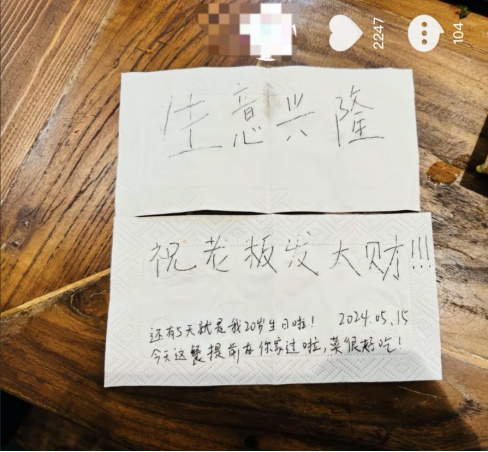 2247
104
生意兴隆
祝老板发大财!!!
还有5天就是我20岁生日啦! 2024.05.15
今天这餐提前在你家过啦,菜很好吃!